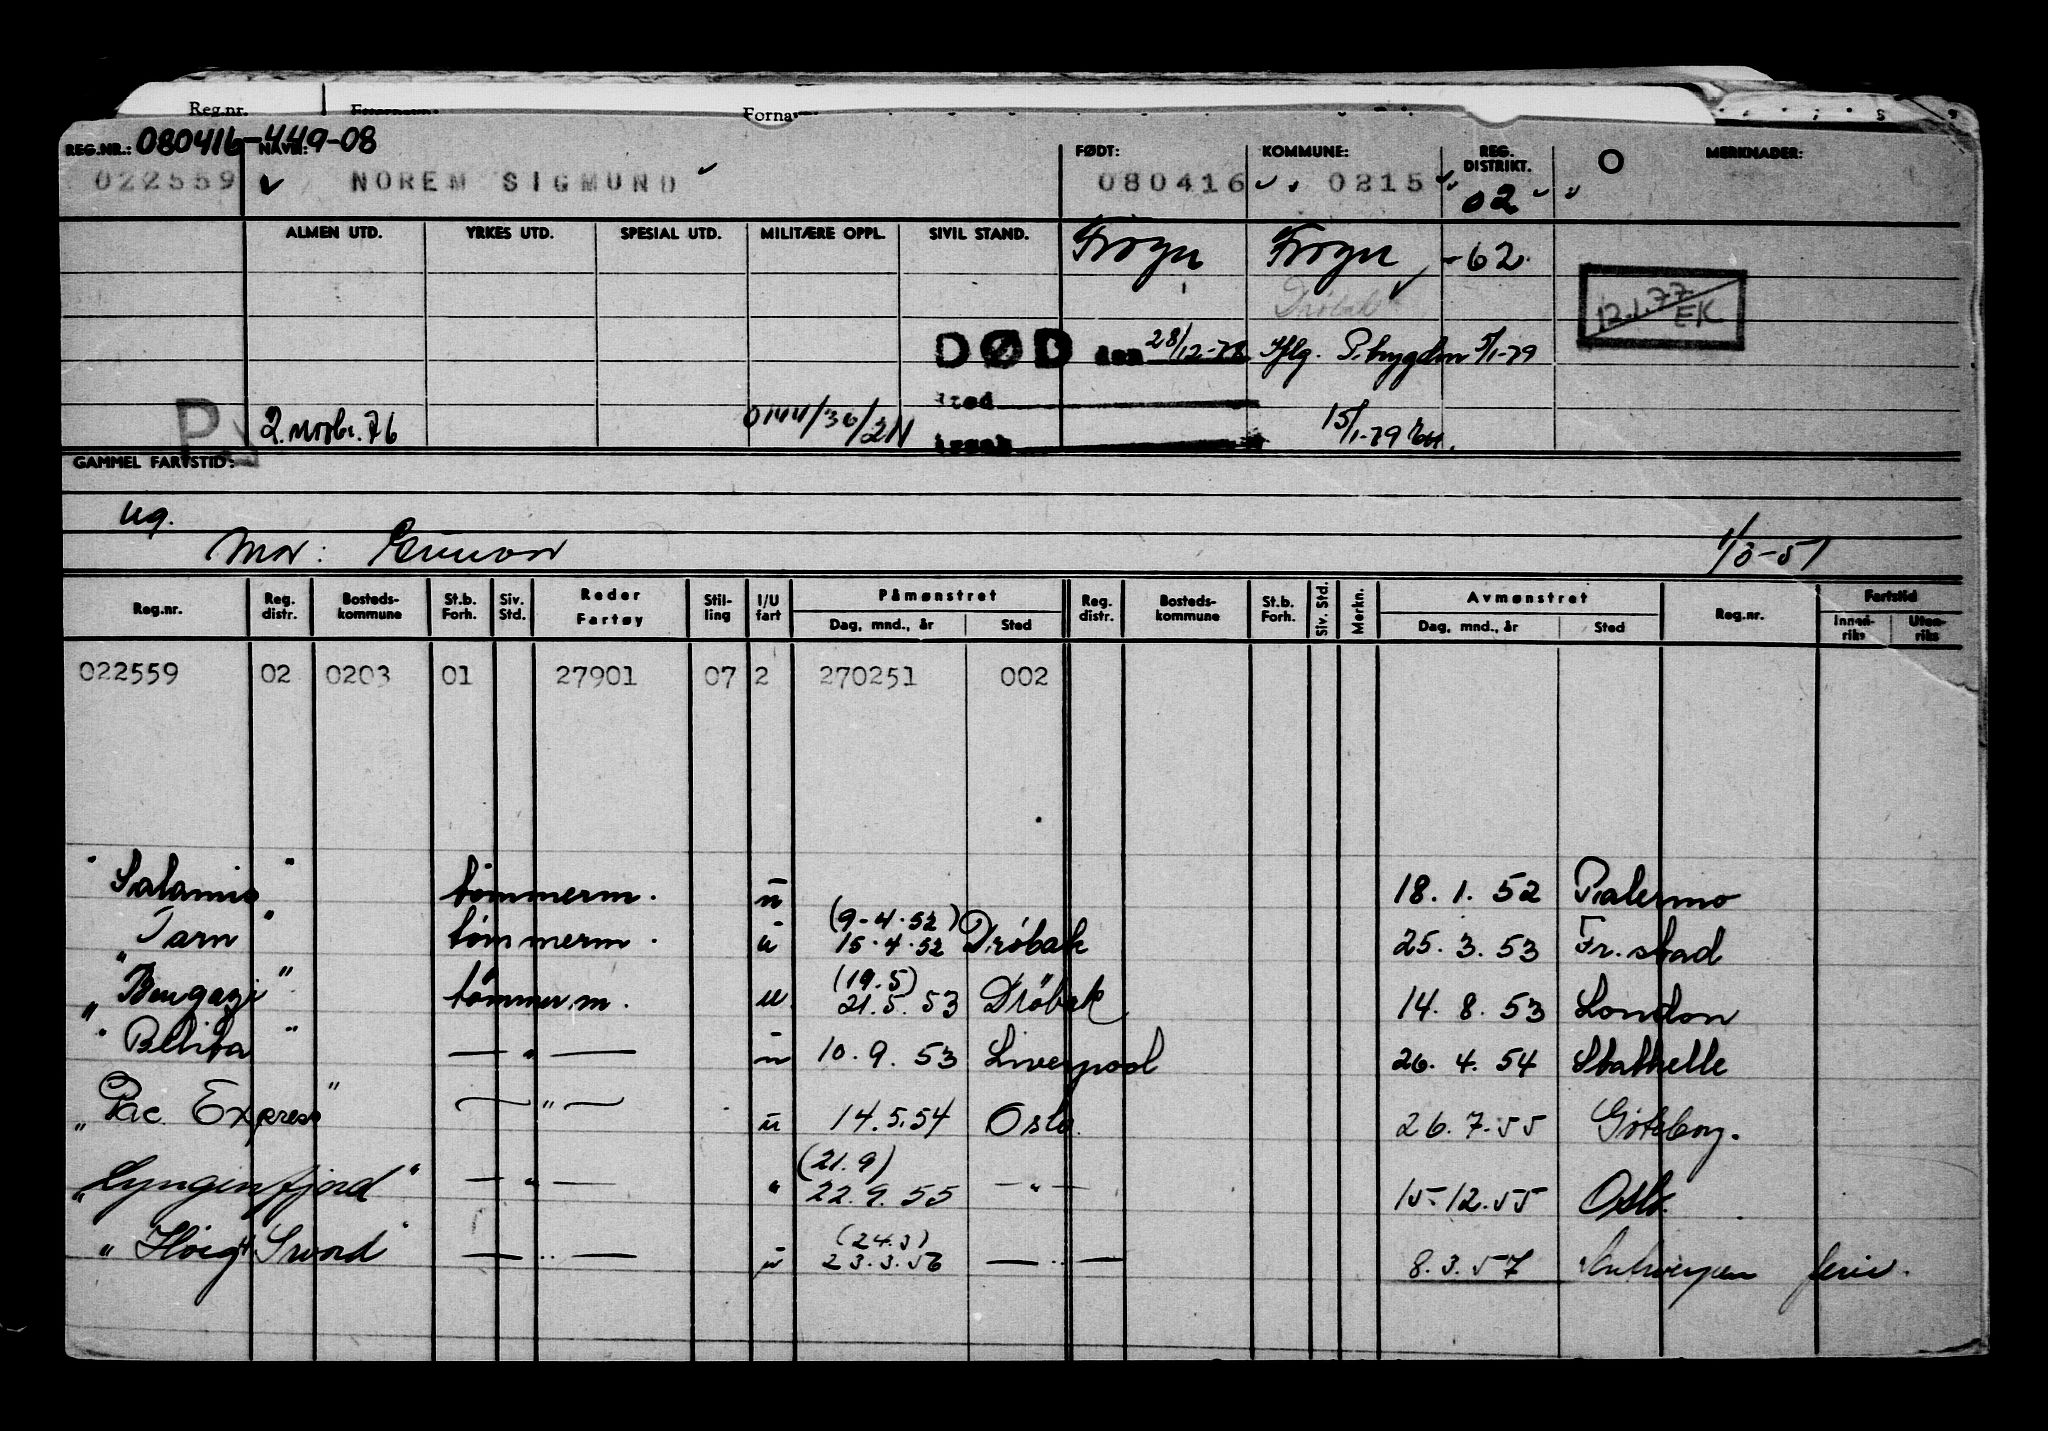 Reg.nr. Etternavn: Forna
REG.NR.: 080416-449-08 NAVN: FØDT: KOMMUNE: REG. DISTRIKT. O MERKNADER:
022559 NOREM SIGMUND 080416 0215 02
ALMEN UTD. YRKES UTD. SPECIAL UTD. MILITÆRE OPPL. SIVIL STAND. Frogn Frogn -62
Drøbak 12.1.77 EK
DØD den 28/12-78 5/1-79
Sted
P 2. novbr. 76 0144/36/2N årsak 15/1-79
GAMMEL FARTSTID:
ug.
Mor: Gunvor 1/3-51
Reg.nr. Reg. distr. Bosteds-kommune St.b. Forh. Siv. Std. Reder Fartøy Stil-ling I/U fart Påmønstret Dag, mnd., år Sted Reg. distr. Bosteds-kommune St.b. Forh. Siv. Std. Merkn. Avmønstret Dag, mnd., år Sted Reg.nr. Fartstid Innen-riks Uten-riks
022559 02 0203 01 27901 07 2 270251 002
"Salamis" tømmerm. u 18.1.52 Palermo
(9-4-52)
"Tarn" tømmerm. u 15.4.52 Drøbak 25.3.53 Fr.stad
(19.5)
"Bengazi" tømmerm. u 21.5.53 Drøbak 14.8.53 London
"Belita" — " — u 10.9.53 Liverpool 26.4.54 Stathelle
"Pac. Express" — " — u 14.5.54 Oslo. 26.7.55 Göteborg.
(21.9)
"Lyngenfjord" — " — " 22.9.55 — " — 15.12.55 Oslo.
(24.3)
"Høegh Sword" — " — u 23.3.56 — " — 8.3.57 Antwerpen ferie.